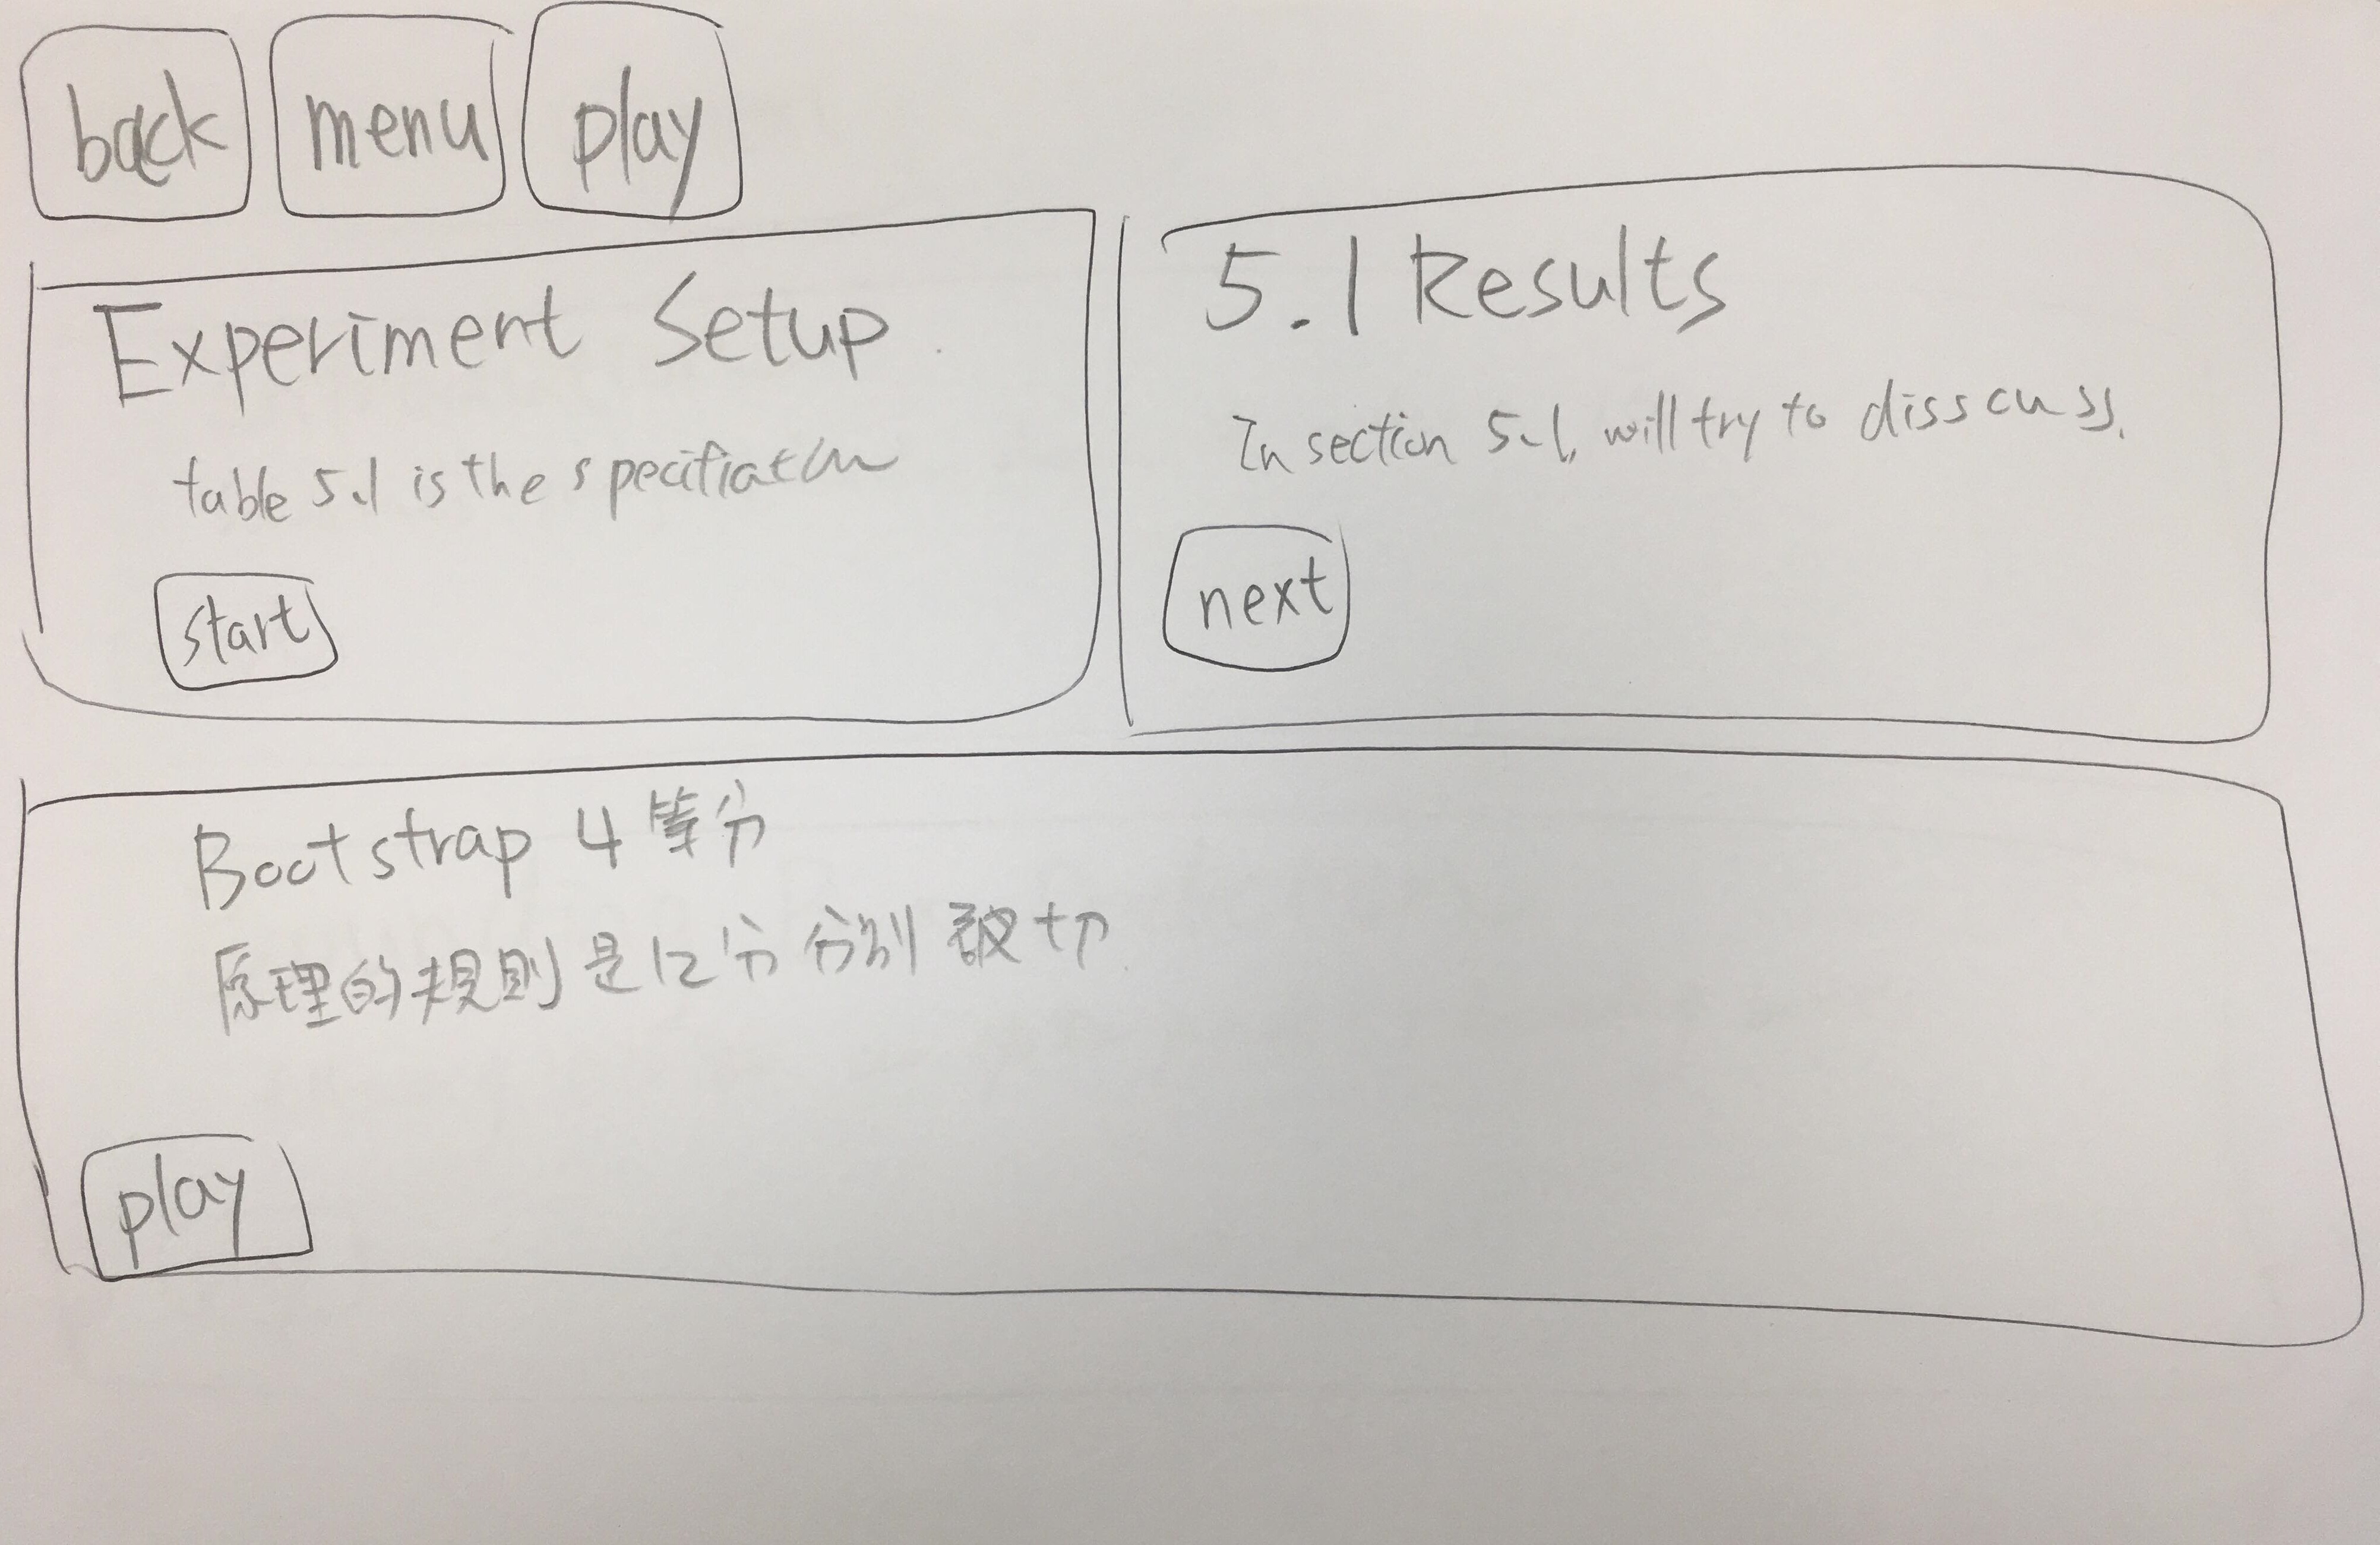 back menu play
Experiment Setup
table 5.1 is the
start
5.1 Results
In section 5.1, will try to disscuss.
next
Bootstrap 4 等分
原理的規則是12分分別被切
play